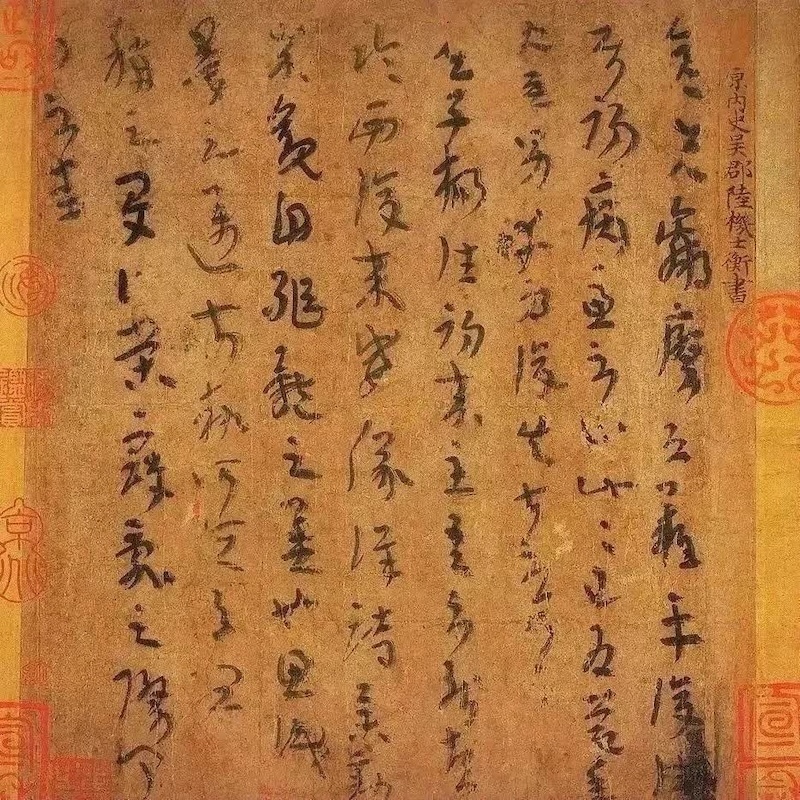 晉内史吳郡陸機士衡書
彦先羸瘵恐難平復往
屬初病慮不止此此已為慶承
使唯男幸為復失前憂耳
吳子楊往初來主吾不能盡
臨西復來威儀詳跱舉動
成觀自軀體之美也思識
量之邁前執所恆有宜
稱之夏伯榮寇亂之際聞
問不悉